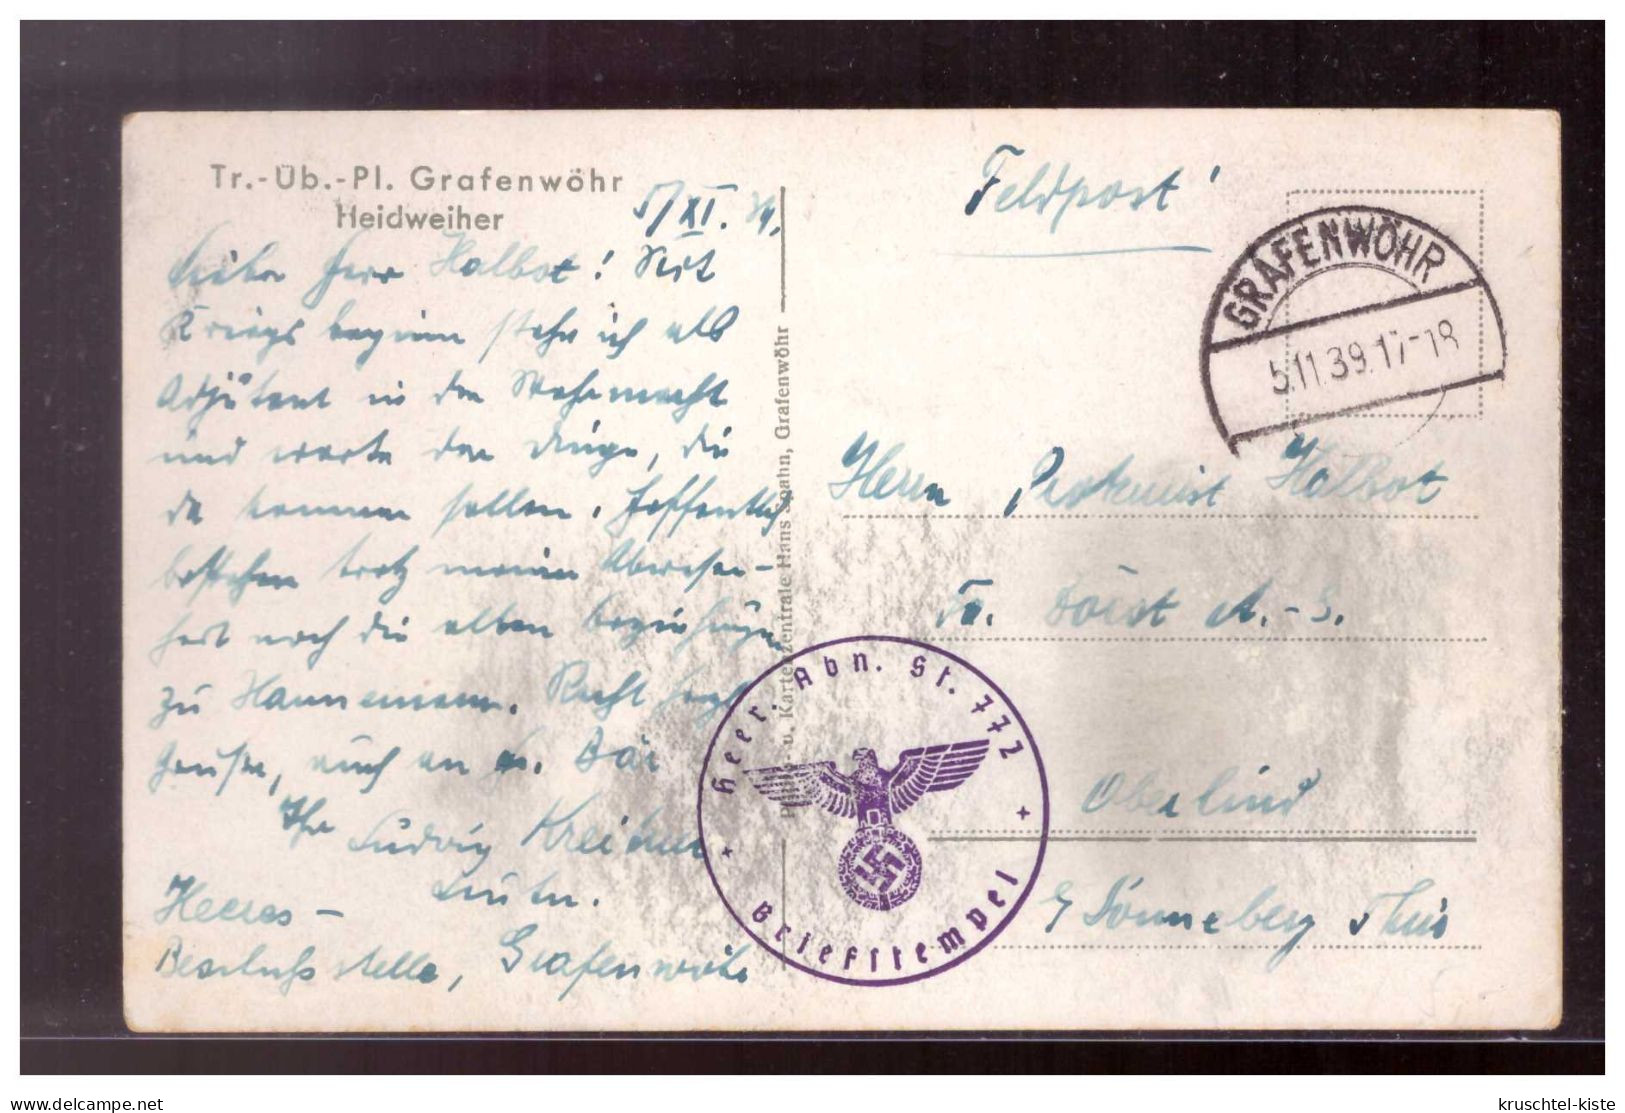 Tr.-Üb.-Pl. Grafenwöhr
Heidweiher
5/XI. 39.
Lieber Herr Halbot! Seit
Kriegsbeginn stehe ich als
Adjutant in der Wehrmacht
und warte der Dinge, die
da kommen sollen. Hoffentlich
bestehen trotz meiner Abwesen-
heit noch die alten Beziehungen
zu Hannemann. Recht herzl.
Grüße, auch an Bär
Ihr Ludwig
Leutn.
Heeres-
stelle, Grafenwöhr
u. Kartenzentrale Hans Spahn, Grafenwöhr
Feldpost!
GRAFENWÖHR
5.11.39.17-18
Herrn Prokurist Halbot
Fa. A.-G.
Oberlind
Sonneberg Thür
Heer. Abn. St. 772
+ +
Briefstempel
www.delcampe.net
kruschtel-kiste